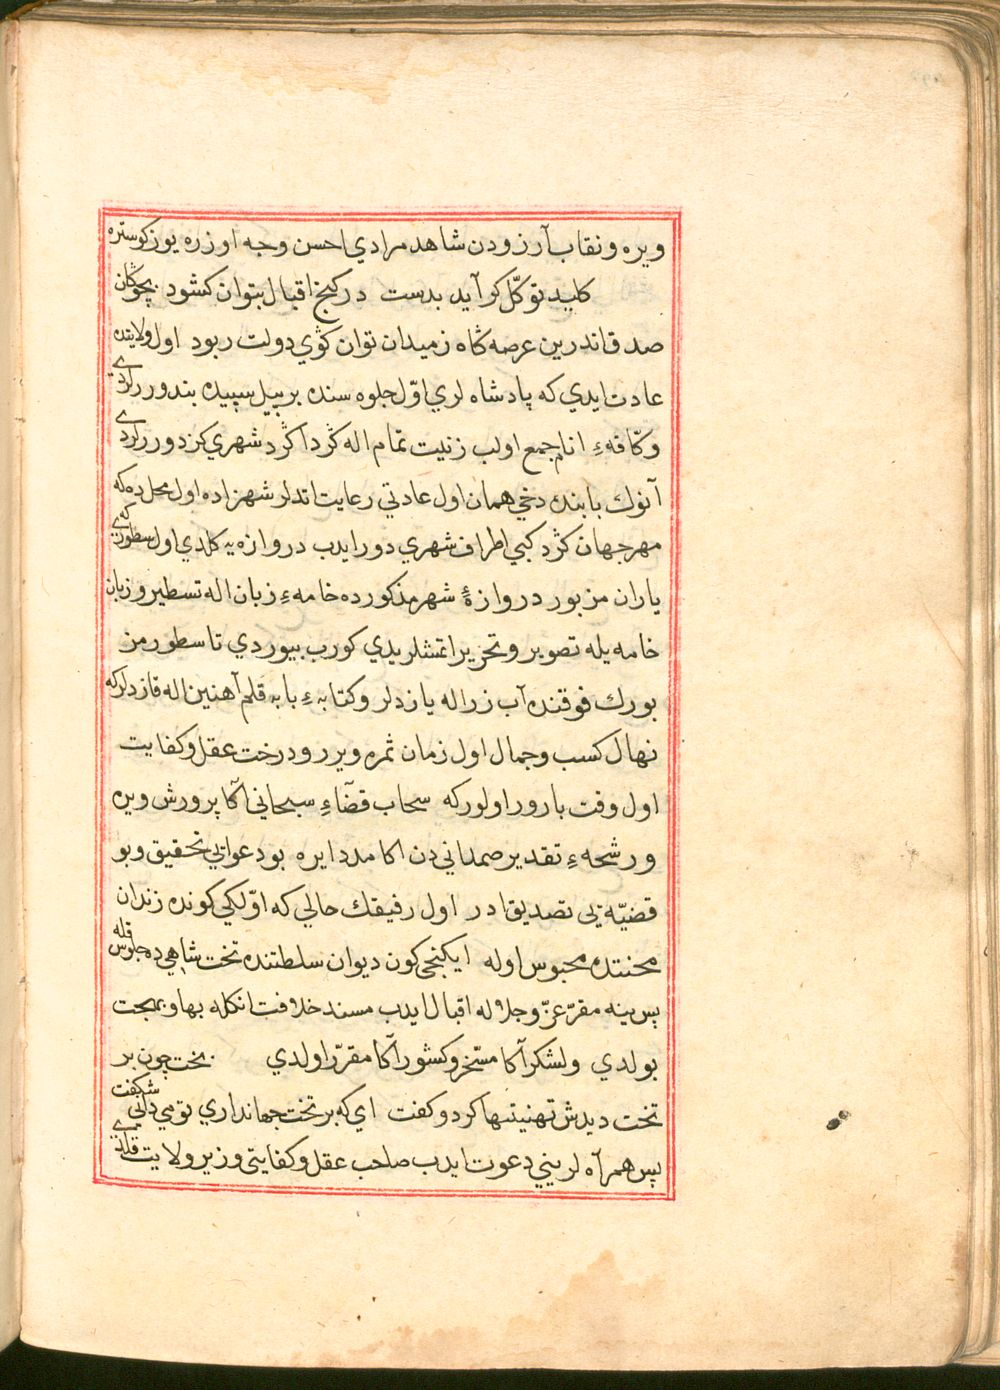 ویره و نقاب آرزودن شاهد مرادي احسن وجه اوزره یوز کوستره
کلید توکّل کر آید بدست در کنج اقبال بتوان کشود بچوکان
صدقاندرین عرصه کاه زمیدان توان کوی دولت ربود اول ولایتده
عادت ایدي که پادشاه لري اوّل جلوه سنده بر پیل سپیده بندوررلردي
و کافهٔ انام جمع اولب زنیت تمام اله کرداکرد شهري کزدوررلردي
آنوك بابنده دخي همان اول عادتي رعایت اتدلر شهزاده اول محلده که
مهر جهان کرد کبي اطراف شهري دور ایدب دروازه یه کلدي اول سطوري که
یاران مزبور دروازهٔ شهر مذکورده خامهٔ زبان اله تسطیر و زبان
خامه یله تصویر و تحریر اتمشلریدي کورب بیوردي تا سطور مز
بورك فوقنده آب زر اله یازدلر و کتابهٔ بابه قلم آهنین اله قازدلر که
نهال کسب و جمال اول زمان ثمره ویرر و درخت عقل و کفایت
اول وقت بارور اولور که سحاب قضآءِ سبحاني آکا پرورش ویره
و رشحهٔ تقدیر صمداني دن اکا مدد ایره بو دعوایي تحقیق و بو
قضیّه یی تصدیق ادر اول رفیقك حالي که اوّلکي کونده زندان
محنتده محبوس اوله ایکنجي کون دیوان سلطنتده تخت شاهي ده جلوس قله
پس ینه مقرّ عزّ و جلاله اقبال ایدب مسند خلافت انکله بها و بهجت
بولدي و لشکر آکا مسخّر و کشور آکا مقرّر اولدي بخت چون بر
تخت دیدش تهنیتها کرد و کفت اي که بر تخت جهانداري تو مي دانی شکفت
پس همراه لریني دعوت ایدب صاحب عقل و کفایتی وزیر ولایت قلدي